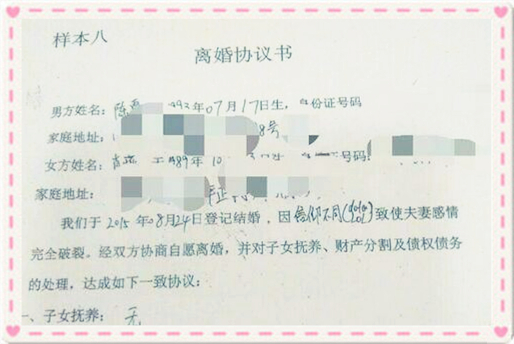 样本八
离婚协议书
男方姓名：陈 992年07月17日生，身份证号码
家庭地址： 8号
女方姓名： 于1989年10 号码：
家庭地址：
我们于2015年08月24日登记结婚，因信仰不同( )致使夫妻感情
完全破裂。经双方协商自愿离婚，并对子女抚养、财产分割及债权债务
的处理，达成如下一致协议：
一、子女抚养：无